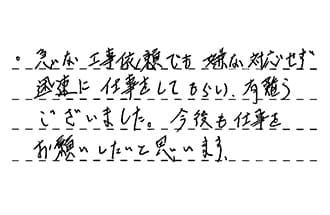 。急な工事依頼でも嫌な対応せず
迅速に仕事をしてもらい、有難う
ございました。今後も仕事を
お願いしたいと思います。